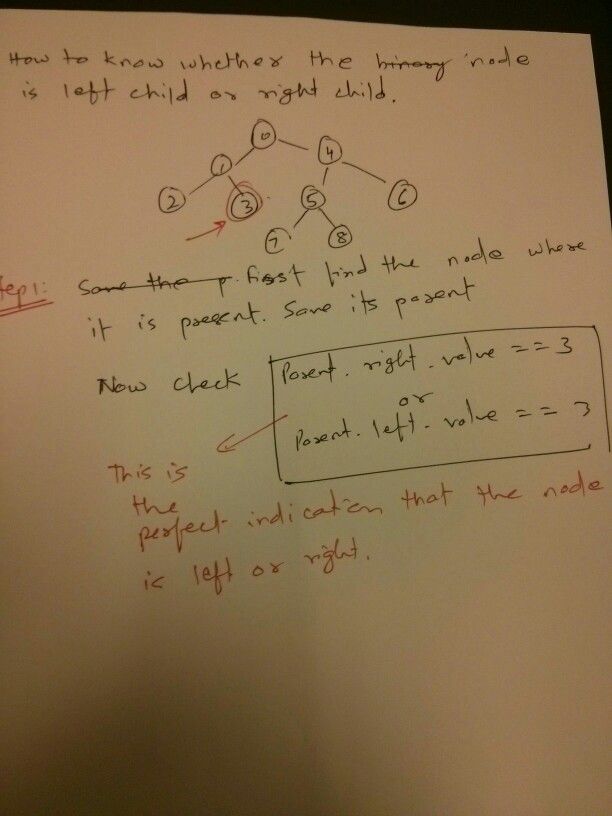 How to know whether the binary node
is left child or right child.
0
1 4
2 3 5 6
7 8
Step 1: Save the p first find the node where
it is present. Save its parent
Now check
Parent. right. value == 3
or
Parent. left. value == 3
This is
the
perfect indication that the node
is left or right.